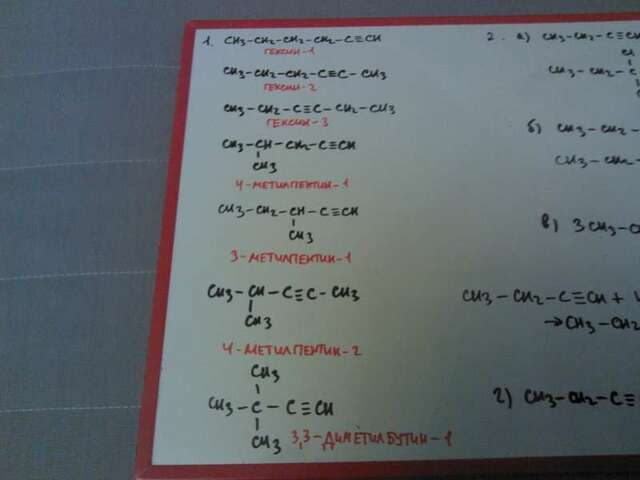 1. CH3-CH2-CH2-CH2-C≡CH
ГЕКСИН-1
CH3-CH2-CH2-C≡C-CH3
ГЕКСИН-2
CH3-CH2-C≡C-CH2-CH3
ГЕКСИН-3
CH3-CH-CH2-C≡CH
CH3
4-МЕТИЛПЕНТИН-1
CH3-CH2-CH-C≡CH
CH3
3-МЕТИЛПЕНТИН-1
CH3-CH-C≡C-CH3
CH3
4-МЕТИЛПЕНТИН-2
CH3
CH3-C-C≡CH
CH3
3,3-ДИМЕТИЛБУТИН-1
2. а) CH3-CH2-C≡CH
CH3-CH2-C
б) CH3-CH2-
CH3-CH2-
в) 3CH3-
CH3-CH2-C≡CH+
→CH3-CH2
г) CH3-CH2-C≡